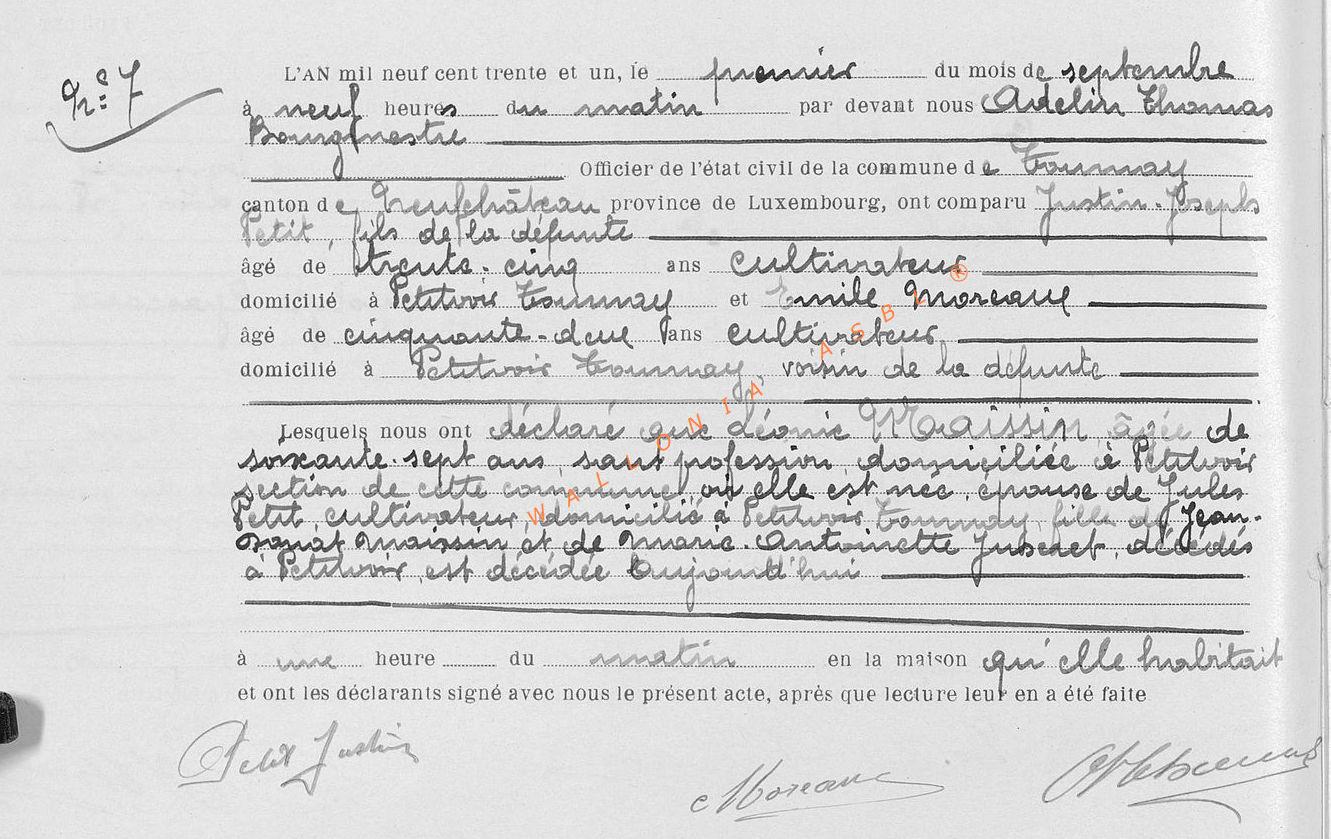 N° 7
L'AN mil neuf cent trente et un, le premier du mois de septembre
à neuf heures du matin par devant nous Adelin Thomas
Bourgmestre
Officier de l'état civil de la commune de Tournay
canton de Neufchâteau province de Luxembourg, ont comparu Justin-Joseph
Petit, fils de la défunte
âgé de trente-cinq ans cultivateur
domicilié à Petitvoir Tournay et Emile Moreaux
âgé de cinquante-deux ans cultivateur
domicilié à Petitvoir Tournay, voisin de la défunte
Lesquels nous ont déclaré que Léonie Maissin, âgée de
soixante-sept ans, sans profession, domiciliée à Petitvoir
section de cette commune, où elle est née, épouse de Jules
Petit, cultivateur, domicilié à Petitvoir Tournay, fille de Jean-
Donat Maissin et de Marie-Antoinette, décédés
à Petitvoir, est décédée aujourd'hui
à une heure du matin en la maison qu'elle habitait
et ont les déclarants signé avec nous le présent acte, après que lecture leur en a été faite
Petit Justin
Moreaux
WALLONIA ASBL ®